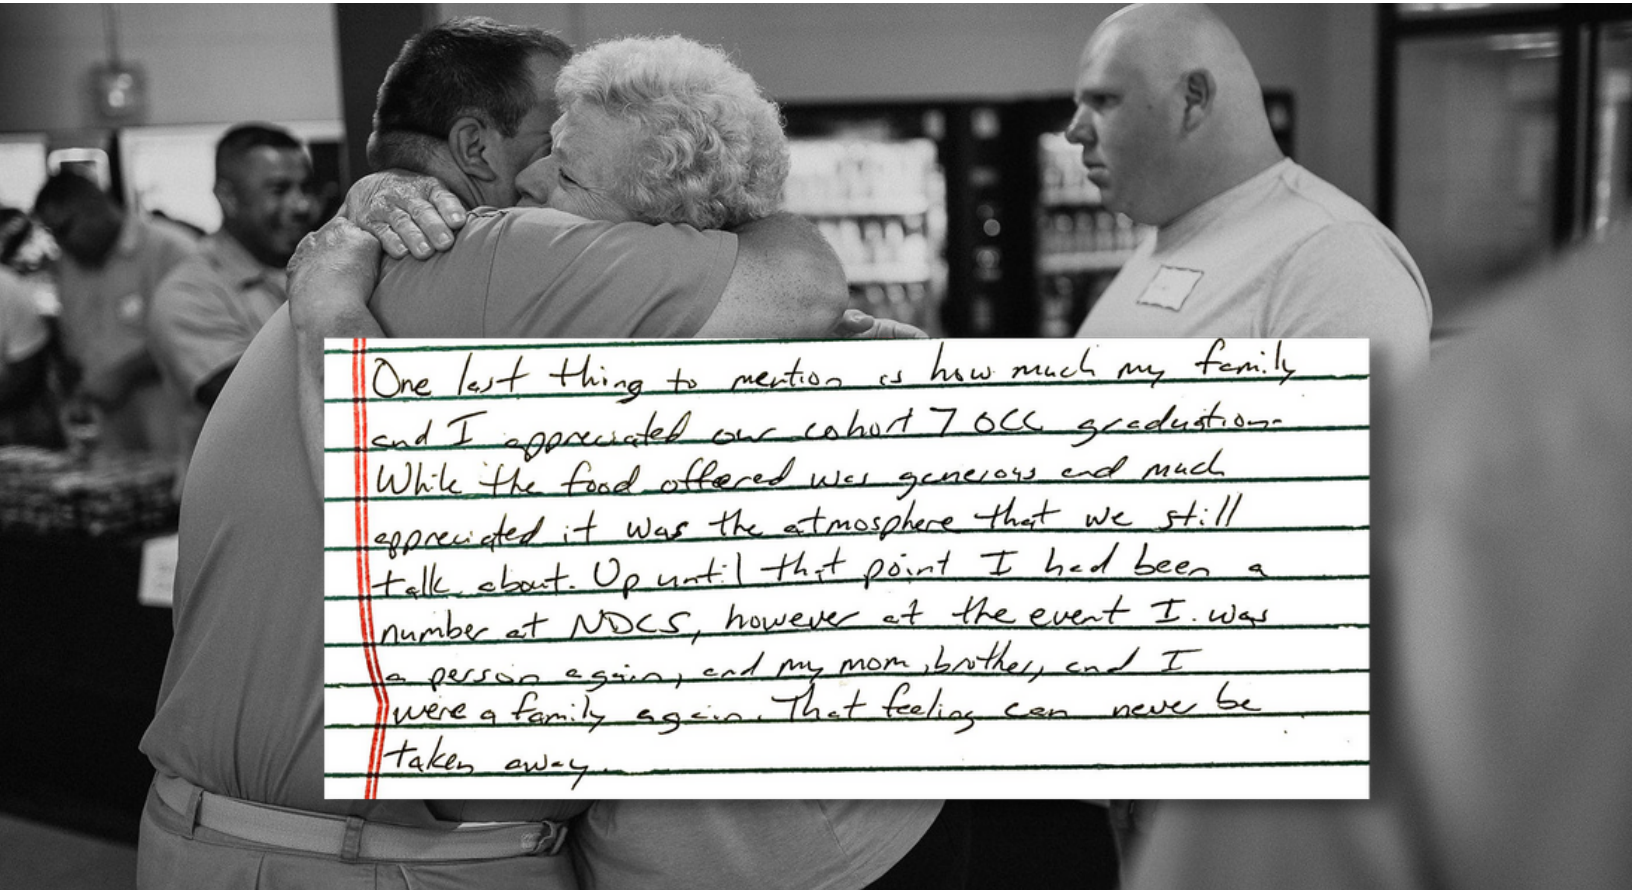 One last thing to mention is how much my family
and I appreciated our cohort 7 OCC graduation.
While the food offered was generous and much
appreciated it was the atmosphere that we still
talk about. Up until that point I had been a
number at NDCS, however at the event I was
a person again, and my mom, brother, and I
were a family again. That feeling can never be
taken away.